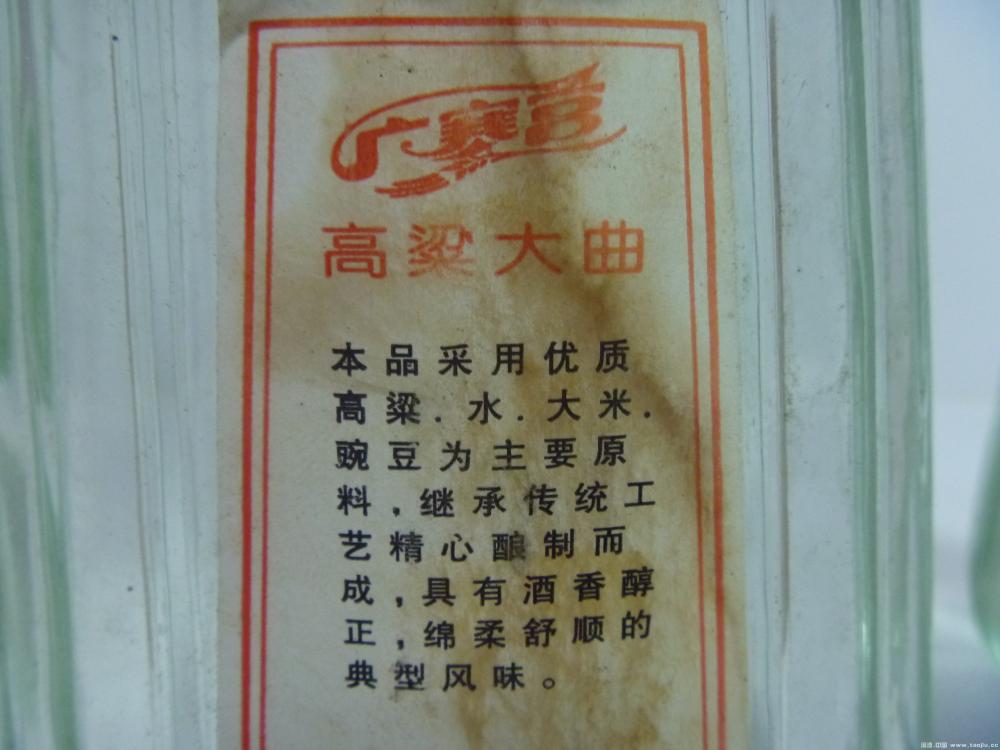 高粱大曲
本品采用优质
高粱.水.大米.
豌豆为主要原
料,继承传统工
艺精心酿制而
成,具有酒香醇
正,绵柔舒顺的
典型风味。